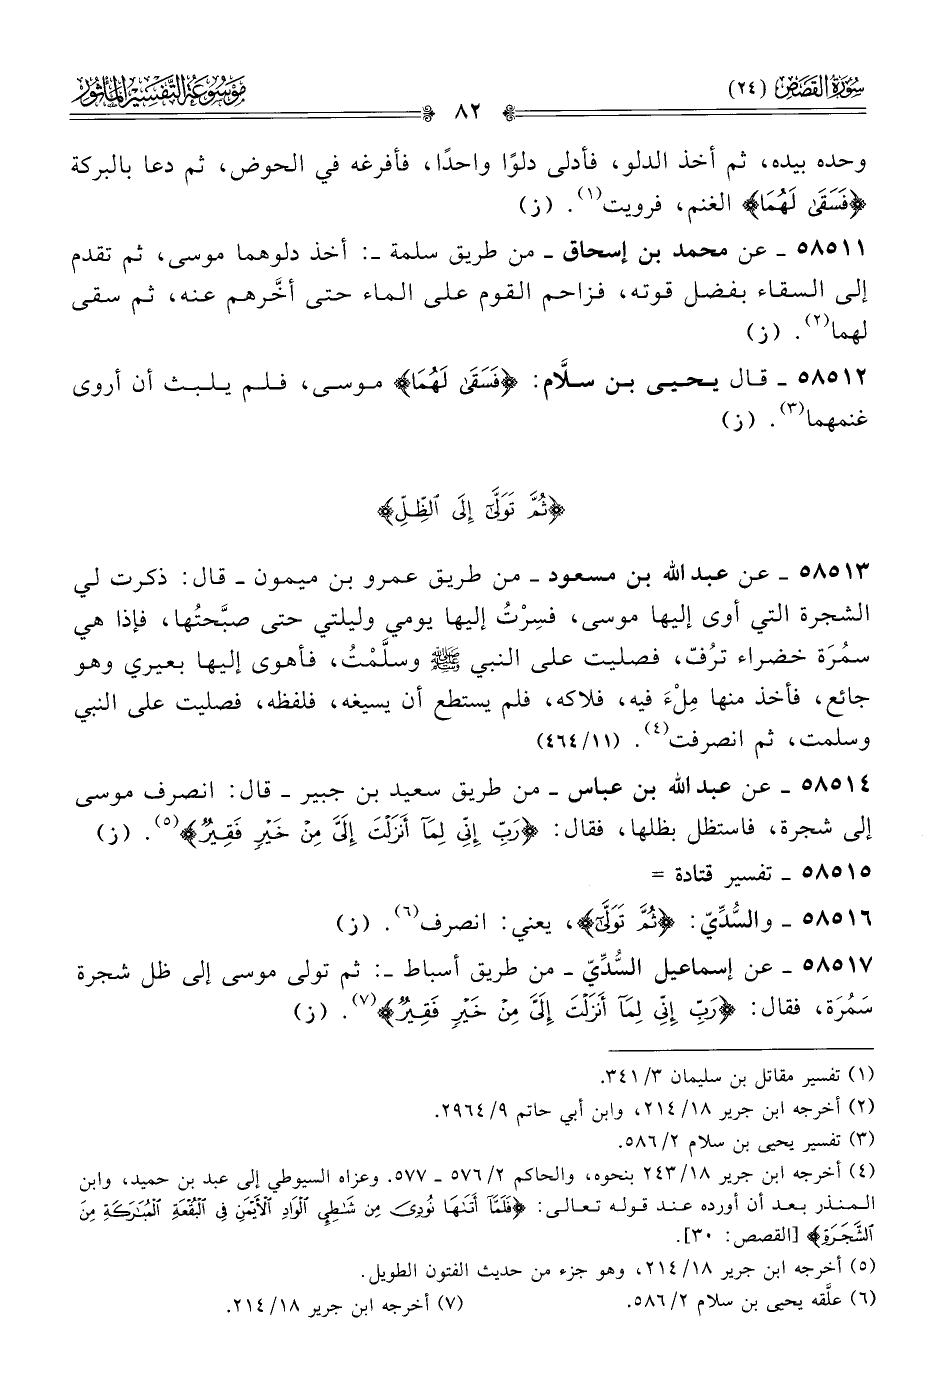 سورة القصص (٢٤)
٨٢
موسوعة التفسير المأثور
وحده بيده، ثم أخذ الدلو، فأدلى دلوًا واحدًا، فأفرغه في الحوض، ثم دعا بالبركة
﴿فَسَقَىٰ لَهُمَا﴾ الغنم، فرويت(١). (ز)
٥٨٥١١ ـ عن محمد بن إسحاق ـ من طريق سلمة ـ: أخذ دلوهما موسى، ثم تقدم
إلى السقاء بفضل قوته، فزاحم القوم على الماء حتى أخَّرهم عنه، ثم سقى
لهما(٢). (ز)
٥٨٥١٢ ـ قال يحيى بن سلَّام: ﴿فَسَقَىٰ لَهُمَا﴾ موسى، فلم يلبث أن أروى
غنمهما(٣). (ز)
﴿ثُمَّ تَوَلَّىٰٓ إِلَى ٱلظِّلِّ﴾
٥٨٥١٣ ـ عن عبد الله بن مسعود ـ من طريق عمرو بن ميمون ـ قال: ذكرت لي
الشجرة التي أوى إليها موسى، فسِرْتُ إليها يومي وليلتي حتى صبَّحتُها، فإذا هي
سمُرَة خضراء ترُفّ، فصليت على النبي ﷺ وسلَّمْتُ، فأهوى إليها بعيري وهو
جائع، فأخذ منها مِلْءَ فيه، فلاكه، فلم يستطع أن يسيغه، فلفظه، فصليت على النبي
وسلمت، ثم انصرفت(٤). (١١/٤٦٤)
٥٨٥١٤ ـ عن عبد الله بن عباس ـ من طريق سعيد بن جبير ـ قال: انصرف موسى
إلى شجرة، فاستظل بظلها، فقال: ﴿رَبِّ إِنِّي لِمَآ أَنزَلْتَ إِلَيَّ مِنْ خَيْرٍ فَقِيرٌ﴾(٥). (ز)
٥٨٥١٥ ـ تفسير قتادة =
٥٨٥١٦ ـ والسُّدِّيّ: ﴿ثُمَّ تَوَلَّىٰٓ﴾، يعني: انصرف(٦). (ز)
٥٨٥١٧ ـ عن إسماعيل السُّدِّيّ ـ من طريق أسباط ـ: ثم تولى موسى إلى ظل شجرة
سَمُرَة، فقال: ﴿رَبِّ إِنِّي لِمَآ أَنزَلْتَ إِلَيَّ مِنْ خَيْرٍ فَقِيرٌ﴾(٧). (ز)
(١) تفسير مقاتل بن سليمان ٣/ ٣٤١.
(٢) أخرجه ابن جرير ١٨/ ٢١٤، وابن أبي حاتم ٩/ ٢٩٦٤.
(٣) تفسير يحيى بن سلام ٢/ ٥٨٦.
(٤) أخرجه ابن جرير ١٨/ ٢٤٣ بنحوه، والحاكم ٢/ ٥٧٦ ـ ٥٧٧. وعزاه السيوطي إلى عبد بن حميد، وابن
المنذر بعد أن أورده عند قوله تعالى: ﴿فَلَمَّآ أَتَىٰهَا نُودِيَ مِن شَٰطِئِ ٱلْوَادِ ٱلْأَيْمَنِ فِي ٱلْبُقْعَةِ ٱلْمُبَٰرَكَةِ مِنَ
ٱلشَّجَرَةِ﴾ [القصص: ٣٠].
(٥) أخرجه ابن جرير ١٨/ ٢١٤، وهو جزء من حديث الفتون الطويل.
(٦) علَّقه يحيى بن سلام ٢/ ٥٨٦. (٧) أخرجه ابن جرير ١٨/ ٢١٤.